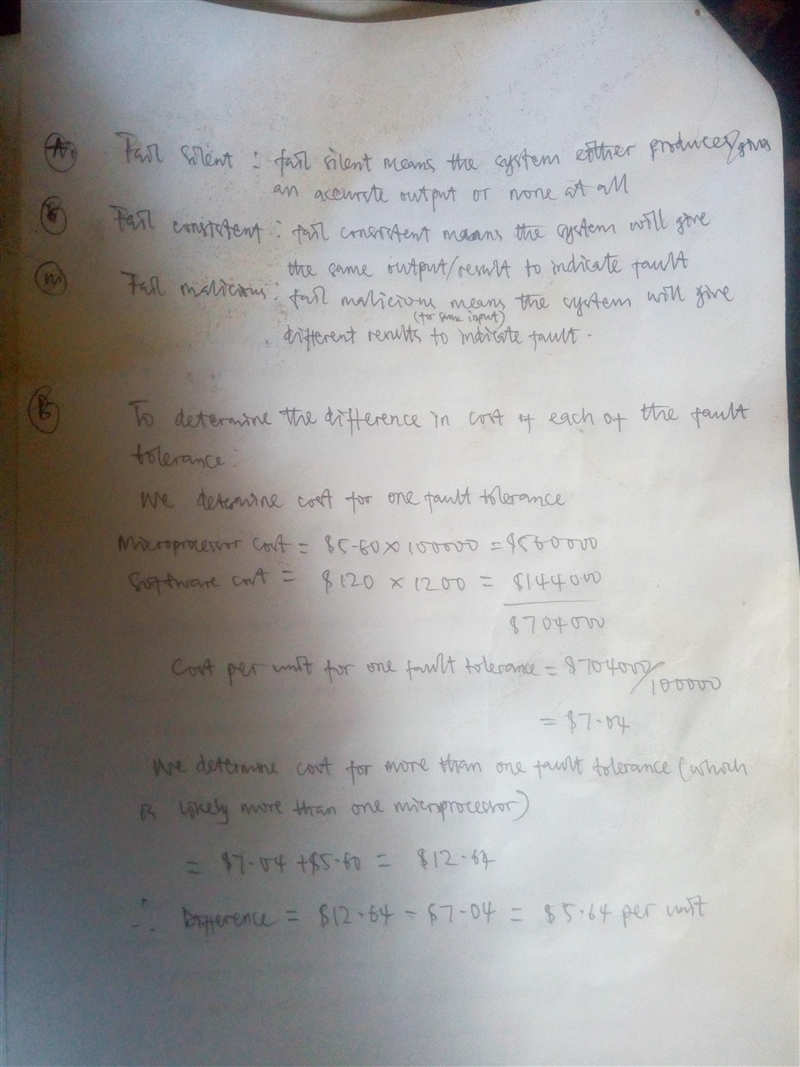 A. Fail silent : fail silent means the system either produces/gives
an accurate output or none at all
B Fail consistent : fail consistent means the system will give
the same output/result to indicate fault
Fail malicious : fail malicious means the system will give
(for same input)
different results to indicate fault.
B To determine the difference in cost of each of the fault
tolerance:
We determine cost for one fault tolerance
Microprocessor cost = $5.60 × 100000 = $560000
Software cost = $120 × 1200 = $144000
$704000
Cost per unit for one fault tolerance = $704000/100000
= $7.04
We determine cost for more than one fault tolerance (which
is likely more than one microprocessor)
= $7.04 + $5.60 = $12.64
∴ Difference = $12.64 - $7.04 = $5.64 per unit